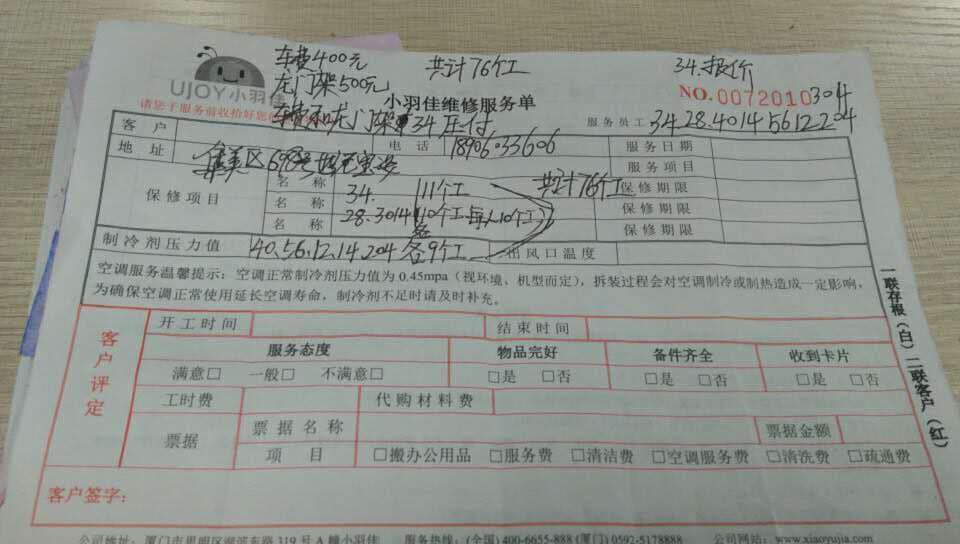 车费400元 共计76个工 34.报价
UJOY小羽佳 龙门架500元
小羽佳维修服务单 NO.0072010 3014
请您于服务前收拾好您
车费和龙门架 34 垫付 服务员工 34.28.40 14 56 12 204
客户 电话 18906033606 服务日期
地址 集美区698号 服务项目
保修项目 名称 34. 11个工 共计76个工 保修期限
名称 28.3014 10个工每人10个工 保修期限
名称 保修期限
制冷剂压力值 40.56.12.14.204 各9个工 出风口温度
空调服务温馨提示:空调正常制冷剂压力值为0.45mpa(视环境、机型而定),拆装过程会对空调制冷或制热造成一定影响,
为确保空调正常使用延长空调寿命,制冷剂不足时请及时补充。
客户评定
开工时间 结束时间
服务态度 物品完好 备件齐全 收到卡片
满意□ 一般□ 不满意□ □是 □否 □是 □否 □是 □否
工时费 代购材料费
票据 票据名称 票据金额
项目 □搬办公用品 □服务费 □清洁费 □空调服务费 □清洗费 □疏通费
客户签字:
公司地址:厦门市思明区湖滨东路319号A幢小羽佳 服务热线:(全国)400-6655-888(厦门)0592-5178888 公司网站:www.xiaoyujia.com
一联存根(白)二联客户(红)